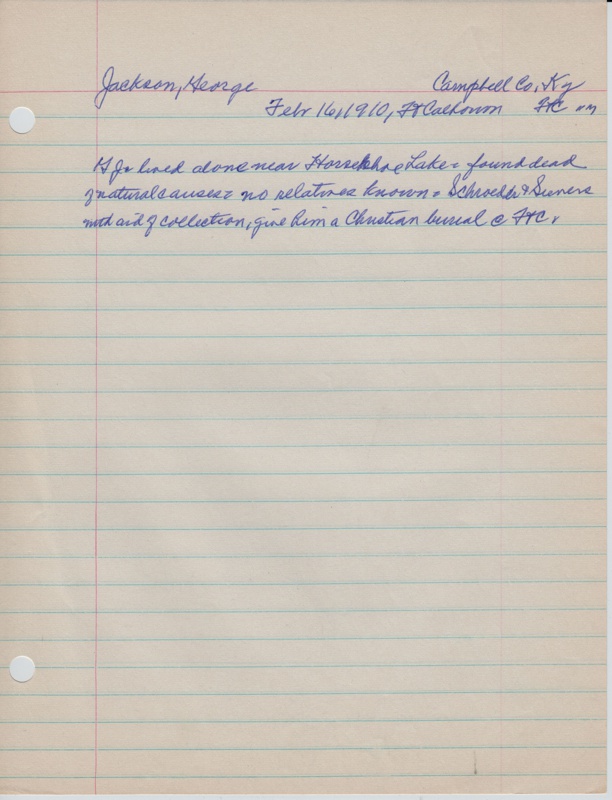 Jackson, George Campbell Co, Ky
Febr 16, 1910, Ft Calhoun FtC
G J - lived alone near Horseshoe Lake - found dead
of natural causes - no relatives known - Schroeder & Sieners
with aid of collection, give him a Christian burial @ FtC.